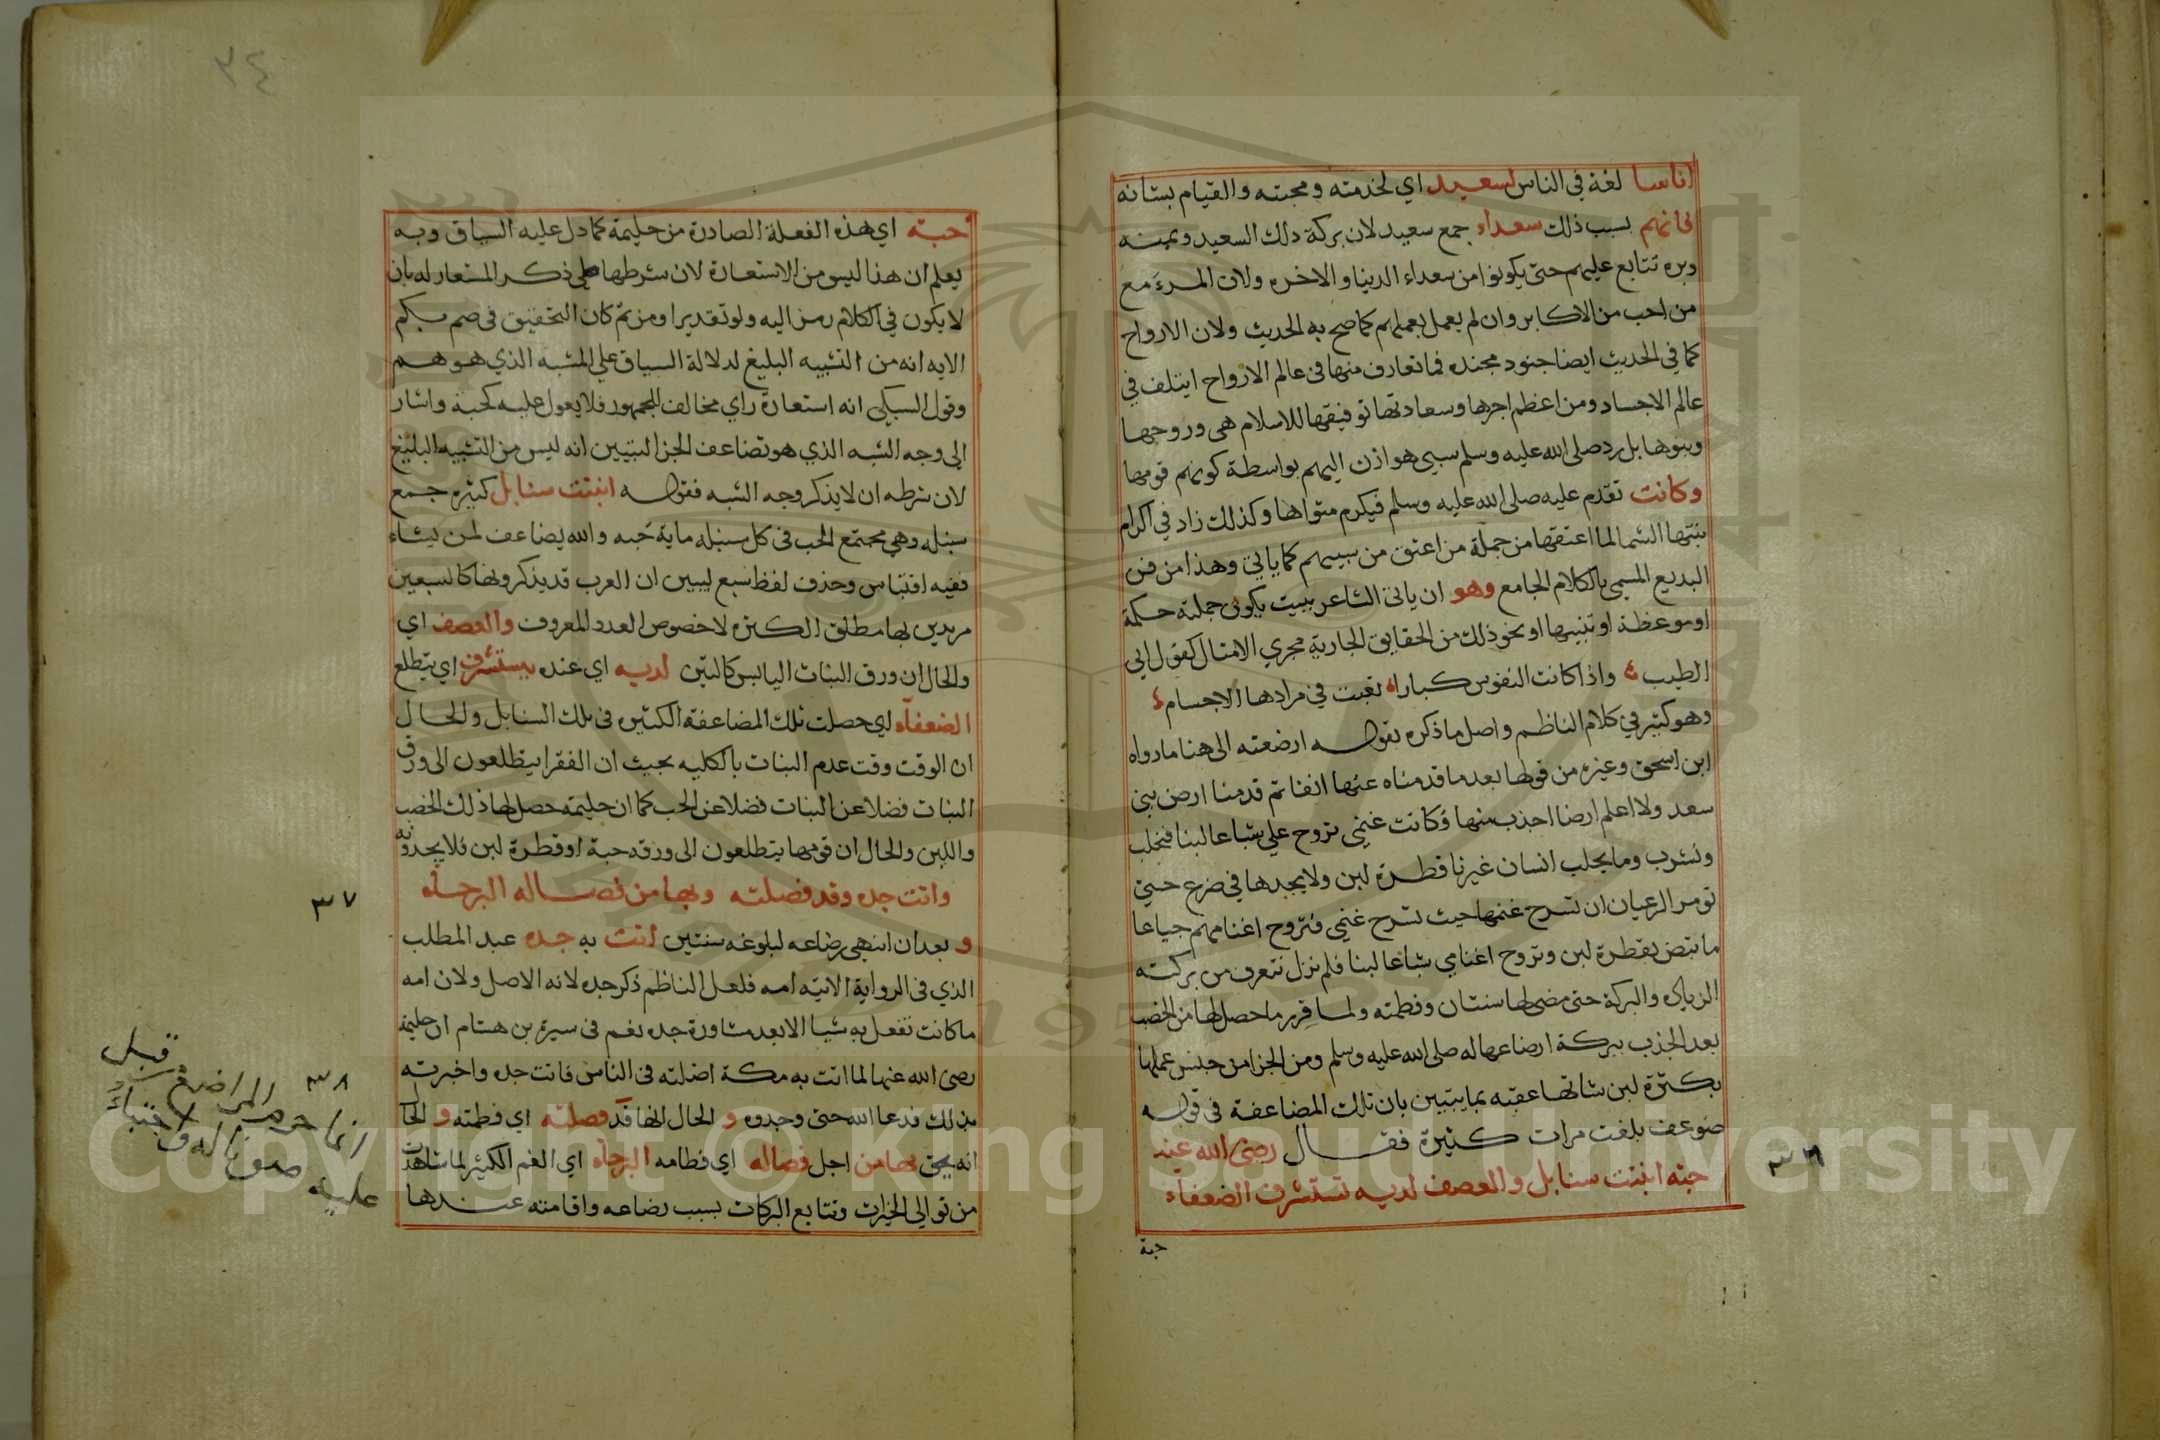 اناسا لغة في الناس لسعيد اي لخدمته ومحبته والقيام بشانه
فانهم بسبب ذلك سعداء جمع سعيد لان بركة ذلك السعيد ويمينه
وبره تتابع عليهم حتى يكونوا من سعداء الدنيا والاخره ولان المرء مع
من احب من الاكابر وان لم يعمل بعملهم كما صح به الحديث ولان الارواح
كما في الحديث ايضا جنود مجنده فما تعارف منها في عالم الارواح ايتلف في
عالم الاجساد ومن اعظم اجرها وسعادتها توفيقها للاسلام هي وزوجها
وبنوها بل رد صلى الله عليه وسلم سبي هوازن اليهم بواسطة كونهم قومها
وكانت تقدم عليه صلى الله عليه وسلم فيكرم مثواها وكذلك زاد في اكرام
بنتها الشما لما اعتقها من جملة من اعتق من سبيهم كما ياتي وهذا من فن
البديع المسمى بالكلام الجامع وهو ان ياتي الشاعر ببيت يكون جملته حكمة
او موعظة او تنبيها او نحو ذلك من الحقايق الجارية مجري الامثال كقول ابي
الطيب واذا كانت النفوس كبارا تعبت في مرادها الاجسام
وهو كثير في كلام الناظم واصل ما ذكره بقوله ارضعته الى هنا ما رواه
ابن اسحق وغيره من قولها بعد ما قدمناه عنها انفا ثم قدمنا ارض بني
سعد ولا اعلم ارضا اجذب منها فكانت غنمي تروح علي شباعا لبنا فنحلب
ونشرب وما يحلب انسان غيرنا قطرة لبن ولا يجدها في ضرع حتى
تومر الرعيان ان تسرح غنمها حيث تسرح غنمي فتروح اغنامهم جياعا
ما تبض بقطرة لبن وتروح اغنامي شباعا لبنا فلم نزل نتعرف من بركته
الزيادة والبركة حتى مضى لها سنتان وفطمته ولما قرر ما حصل لها من الخصب
بعد الجذب ببركة ارضاعها له صلى الله عليه وسلم ومن الجزا من جنس عملها
بكثرة لبن شاتها عقبه بما يتبين بان تلك المضاعفة في قوله
ضوعف بلغت مرات كثيرة فقال رضي الله عنه
حبة انبتت سنابل والعصف لديه تستشرف الضعفاء
٣٦
حبة
٣٤
حبة اي هذه الفعلة الصادرة من حليمة كما دل عليه السياق وبه
يعلم ان هذا ليس من الاستعارة لان شرطها طي ذكر المستعار له بان
لا يكون في الكلام رمز اليه ولو تقديرا ومن ثم كان التحقيق في صم بكم
الايه انه من التشبيه البليغ لدلالة السياق علي المشبه الذي هو هم
وقول السبكي انه استعارة راي مخالف للجمهور فلا يعول عليه كحبة واشار
الى وجه الشبه الذي هو تضاعف الجزا لتبيين انه ليس من التشبيه البليغ
لان شرطه ان لا يذكر وجه الشبه فقوله انبتت سنابل كثيره جمع
سنبله وهي مجتمع الحب في كل سنبله ماية حبه والله يضاعف لمن يشاء
ففيه اقتباس وحذف لفظ سبع ليبين ان العرب قد يذكرونها كالسبعين
مريدين بها مطلق الكثره لا خصوص العدد المعروف والعصف اي
والحال ان ورق النبات اليابس كالتبن لديه اي عنده يستشرف اي يتطلع
الضعفاء اي حصلت تلك المضاعفة الكثيره في تلك السنابل والحال
ان الوقت وقت عدم النبات بالكليه بحيث ان الفقرا يتطلعون الى ورق
النبات فضلا عن النبات فضلا عن الحب كما ان حليمة حصل لها ذلك الخصب
واللبن والحال ان قومها يتطلعون الى ورقه حبة او قطرة لبن فلا يجدونه
واتت جده وقد فصلته وبها من فصاله البرحاء
٣٧
و بعد ان انتهى رضاعه لبلوغه سنتين اتت به جده عبد المطلب
الذي في الرواية الاتيه امه فلعل الناظم ذكر جده لانه الاصل ولان امه
ما كانت تفعل به شيا الا بعد مشاورة جده نعم في سيرة بن هشام ان حليمة
رضي الله عنها لما اتت به مكة اضلته في الناس فاتت جده واخبرته
بذلك فدعا الله حتى وجدوه و الحال انها قد فصلته اي فطمته و الحال
انه يحق بها من اجل فصاله اي فطامه البرحاء اي الغم الكثير لما شاهدت
من توالي الخيرات وتتابع البركات بسبب رضاعه واقامته عندها
٣٨